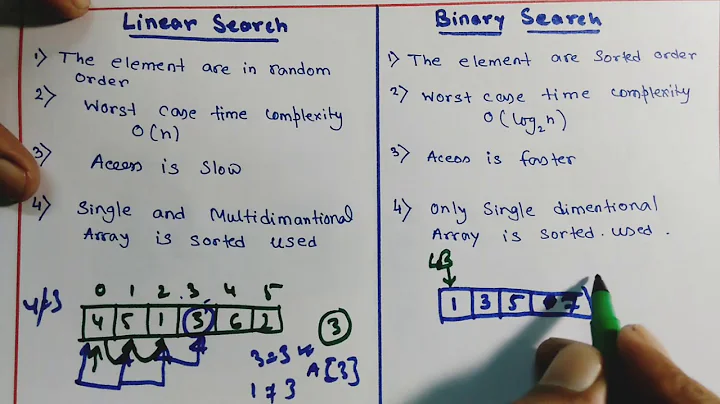 Linear Search
1) The element are in random
order
2) Worst case time complexity
O(n)
3) Access is slow
4) Single and Multidimantional
Array is sorted used
0 1 2 3 4 5
4 5 1 3 6 2
4≠3
3
3=3
A[3]
1≠3
Binary Search
1) The element are sorted order
2) Worst case time complexity
O(log₂n)
3) Access is faster
4) Only Single dimentional
Array is sorted. used.
1 3 5 7